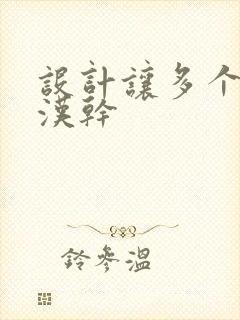 設計讓多个
漢幹
鈴參溫